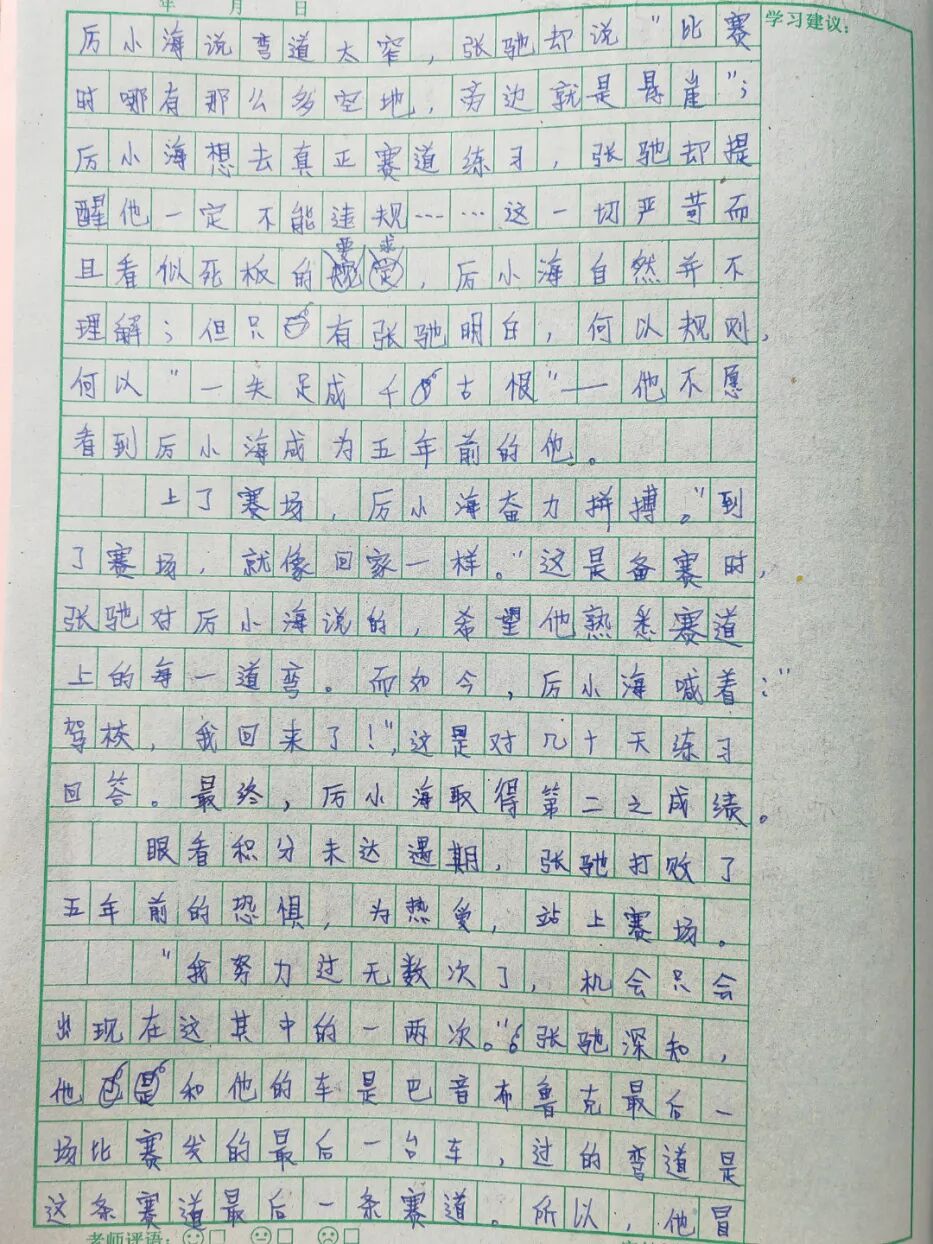 年 月 日
学习建议：
厉小海说弯道太窄，张驰却说"比赛
时哪有那么多空地，旁边就是悬崖"；
厉小海想去真正赛道练习，张驰却提
醒他一定不能违规……这一切严苛而
且看似死板的要求，厉小海自然并不
理解；但只有张驰明白，何以规则，
何以"一失足成千古恨"——他不愿
看到厉小海成为五年前的他。
上了赛场，厉小海奋力拼搏。"到
了赛场，就像回家一样。"这是备赛时，
张驰对厉小海说的，希望他熟悉赛道
上的每一道弯。而如今，厉小海喊着："
驾校，我回来了！"，这是对几十天练习
回答。最终，厉小海取得第二之成绩。
眼看积分未达遇期，张驰打败了
五年前的恐惧，为热爱，站上赛场。
"我努力过无数次了，机会只会
出现在这其中的一两次。"张驰深知，
他和他的车是巴音布鲁克最后一
场比赛发的最后一台车，过的弯道是
这条赛道最后一条赛道。所以，他冒
老师评语：